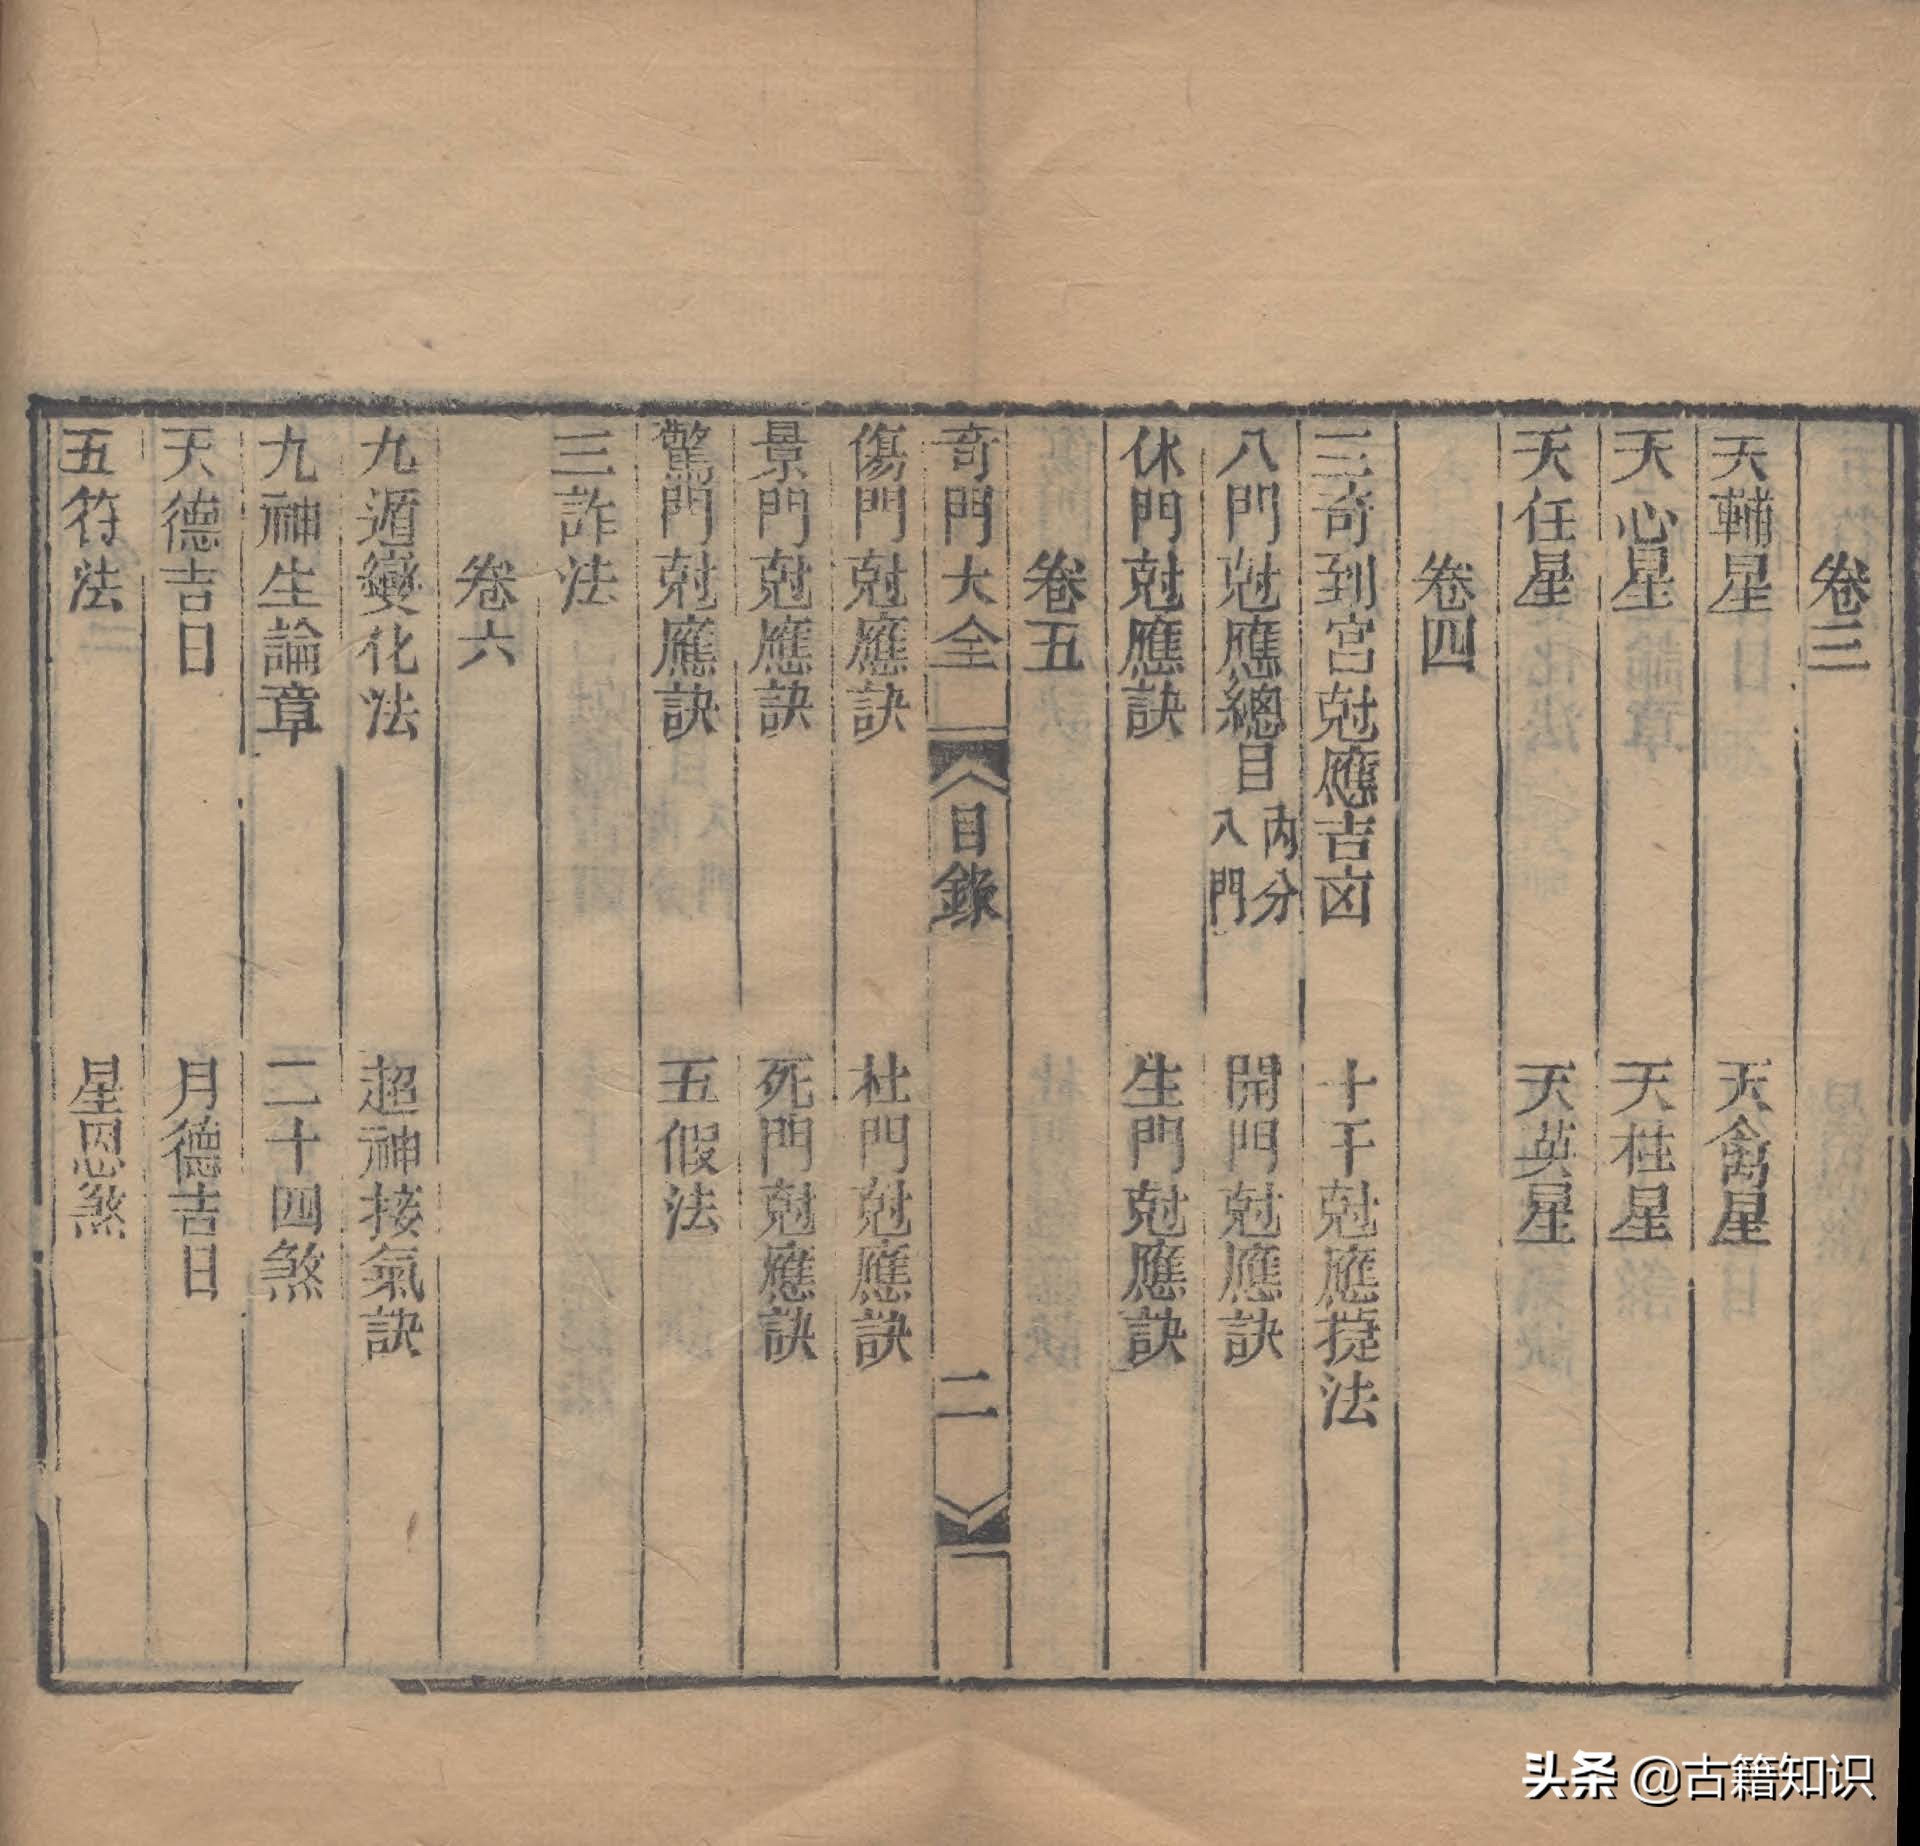 卷三
天輔星 天禽星
天心星 天柱星
天任星 天英星
卷四
三奇到宮尅應吉凶 十干尅應㨗法
八門尅應總目 內分八門 開門尅應訣
休門尅應訣 生門尅應訣
卷五
奇門大全 目錄 二
傷門尅應訣 杜門尅應訣
景門尅應訣 死門尅應訣
驚門尅應訣 五假法
三詐法
卷六
九遁變化法 超神接氣訣
九神生論章 二十四煞
天德吉日 月德吉日
五符法 星恩煞
头条 @古籍知识